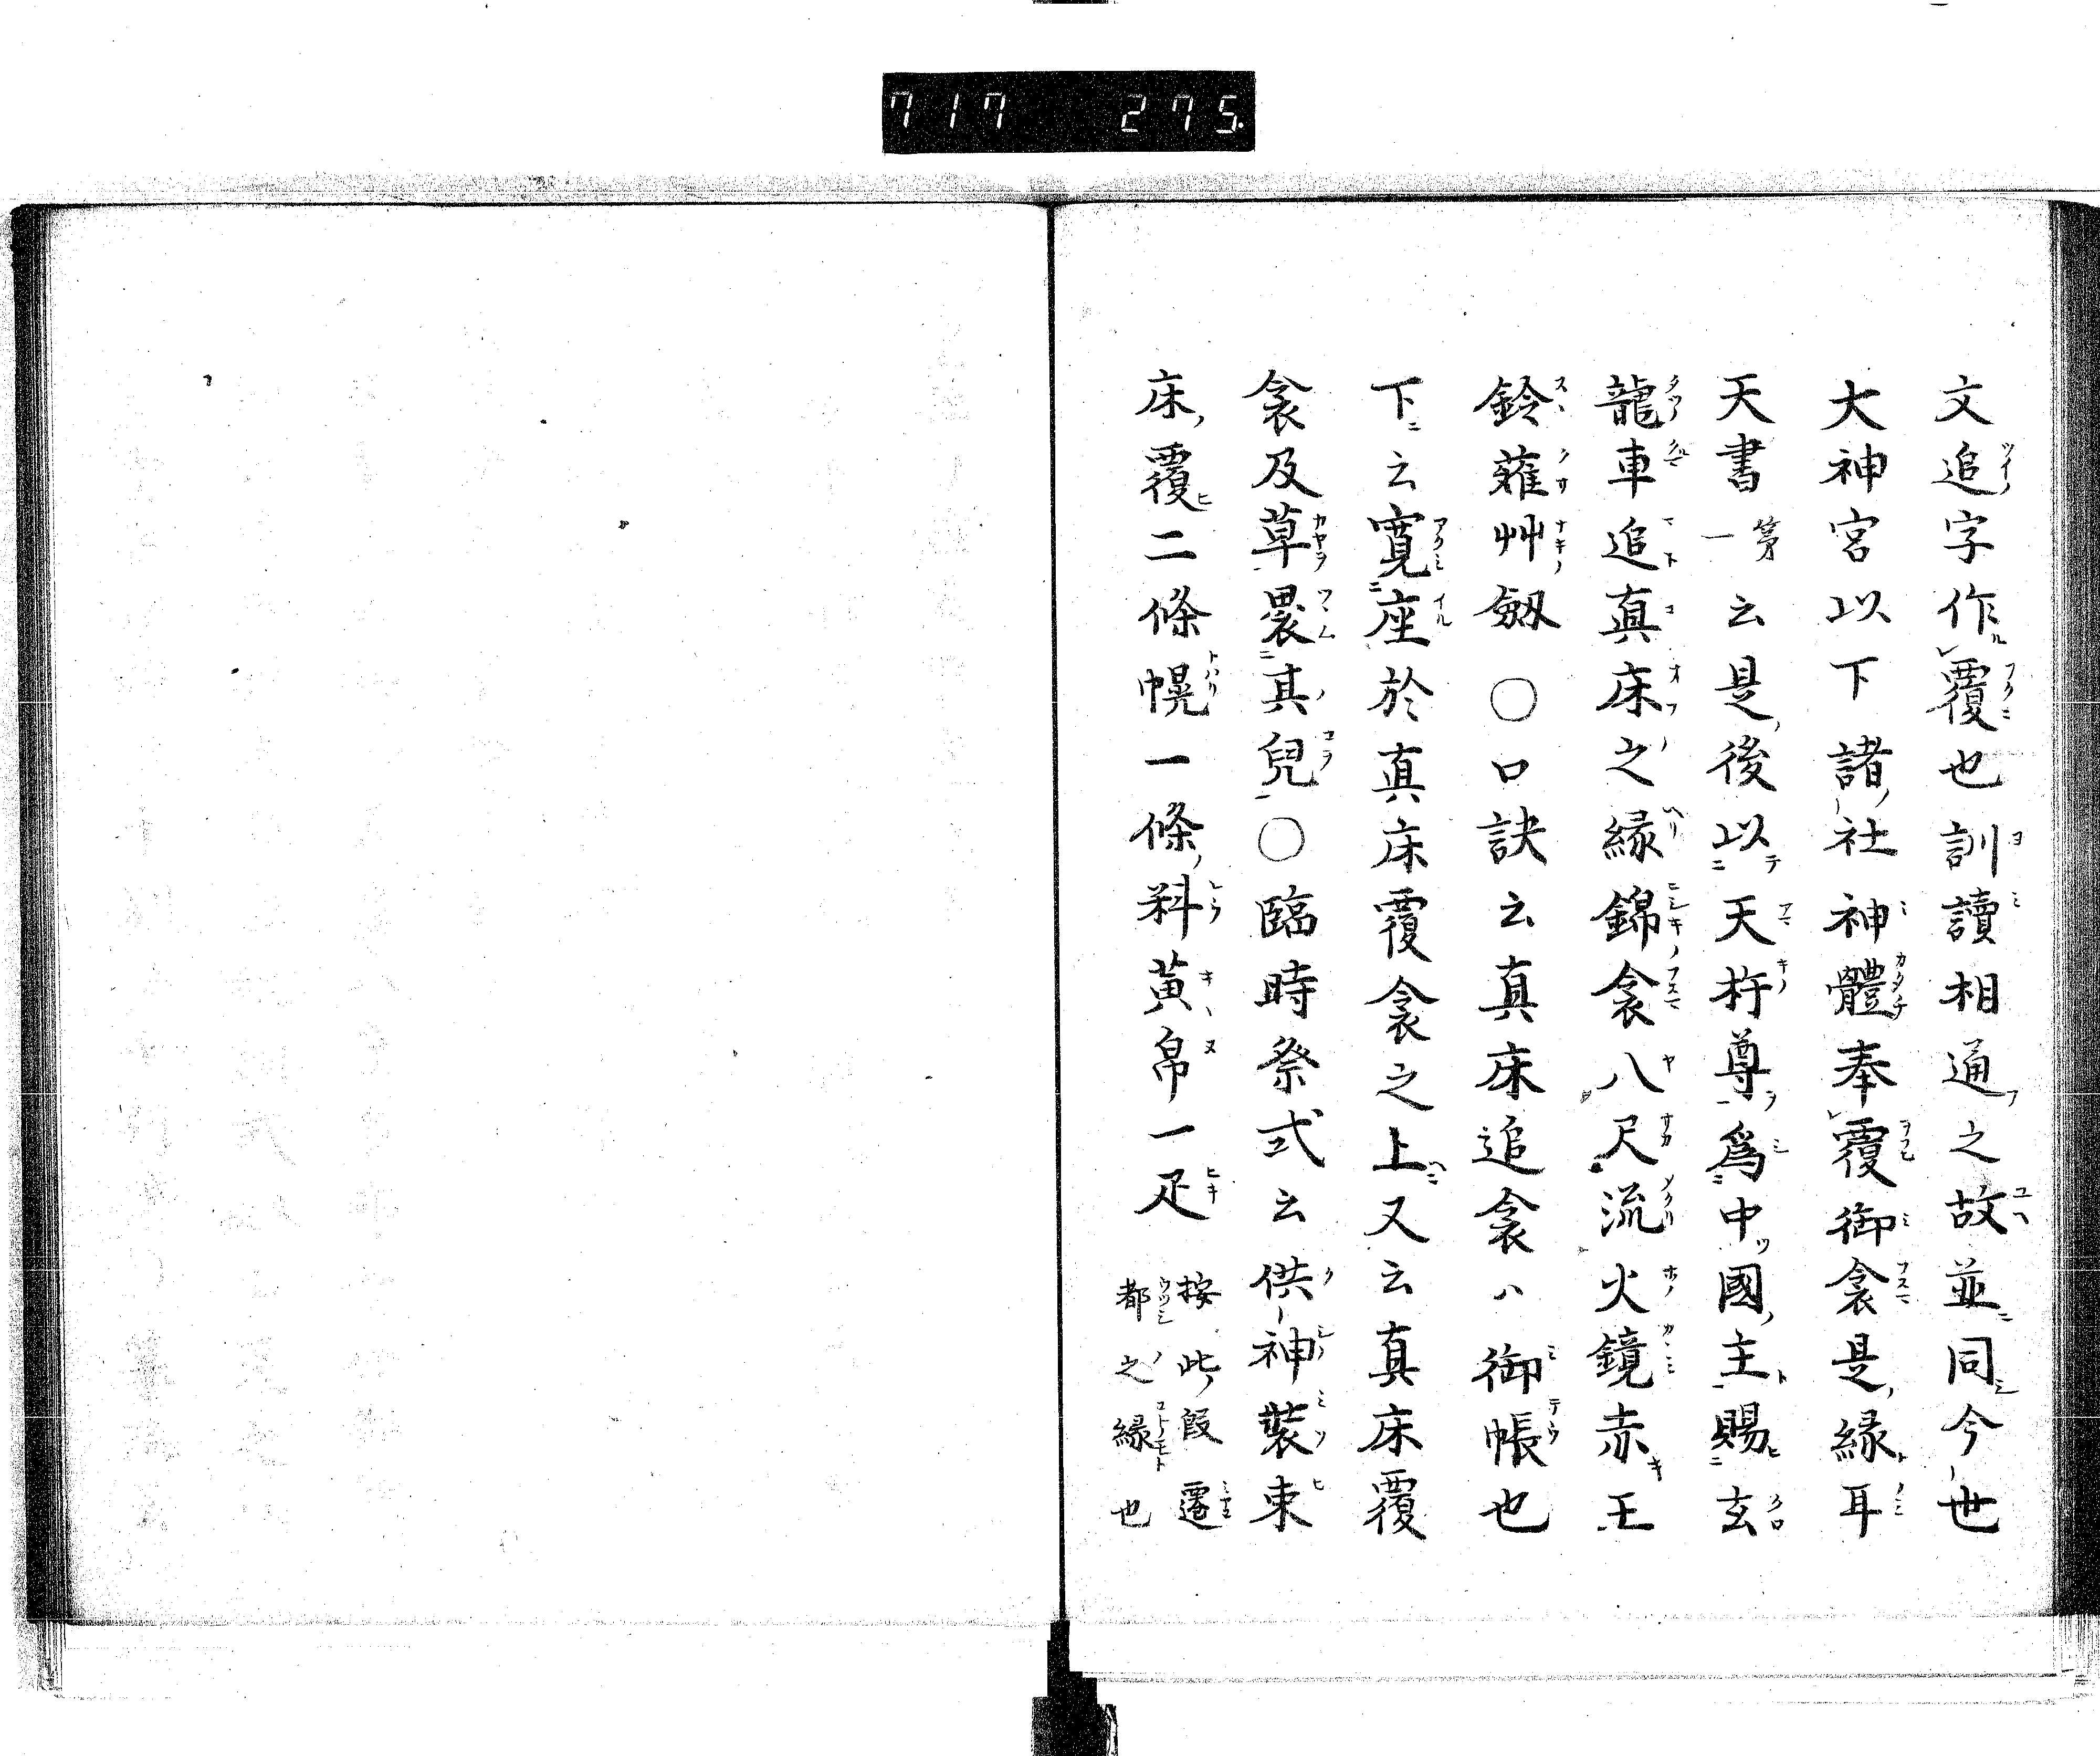 717 275
文追字作覆也訓讀相通之故並同今世
大神宮以下諸社神體奉覆御衾是縁耳
天書第一云是後以天杵尊爲中國主賜玄
龍車追真床之縁錦衾八尺流火鏡赤玉
鈴薙艸劔〇口訣云真床追衾ハ御帳也
下云寛座於真床覆衾之上又云真床覆
衾及草褁其兒〇臨時祭式云供神裝束
床覆二條幌一條料黄帛一疋按此段遷
都之縁也